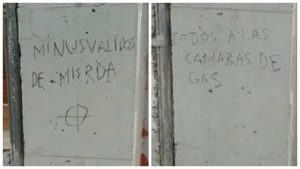 MINUSVALIDOS
DE MIERDA
TODOS A LAS
CAMARAS DE
GAS